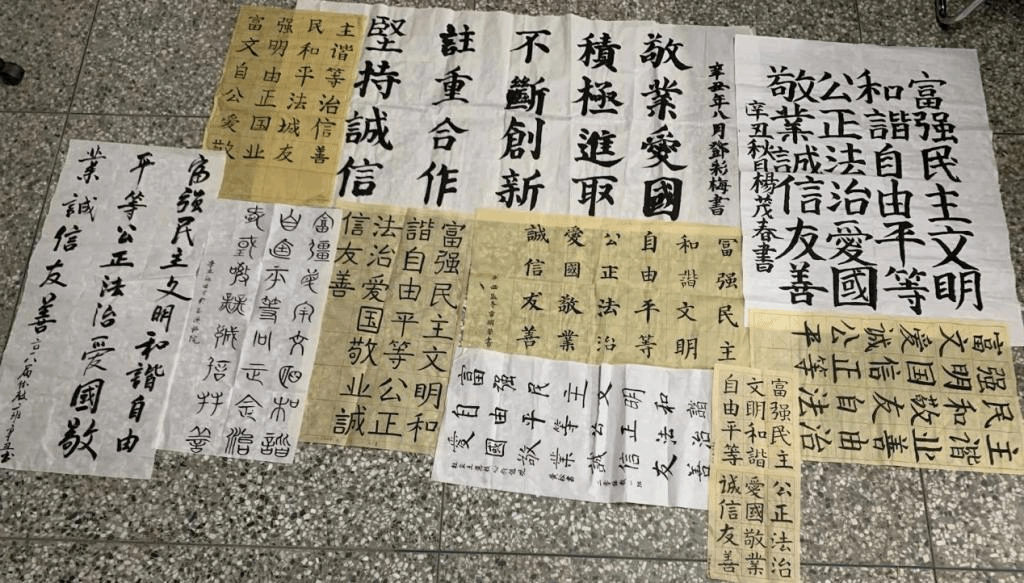 富强民主
文明和谐
自由平等
公正法治
爱国城信
敬业友善
辛丑年八月鄧彩梅書
敬業愛國
積極進取
不斷創新
註重合作
堅持誠信
富强民主文明
和諧自由平等
公正法治愛國
敬業誠信友善
辛丑秋月楊茂春書
富强民主文明和諧自由
平等公正法治愛國敬
業誠信友善
富强民主文明和
諧自由平等公正
法治爱国敬业誠
信友善
富强民主
和諧文明
自由平等
公正法治
愛國敬業
誠信友善
富强民主文明和諧
自由平等公正法治
愛國敬業誠信友善
富强民主
文明和谐
爱国敬业
诚信友善
公正自由
平等法治
富强民主公正法治
文明和諧愛國敬業
自由平等誠信友善